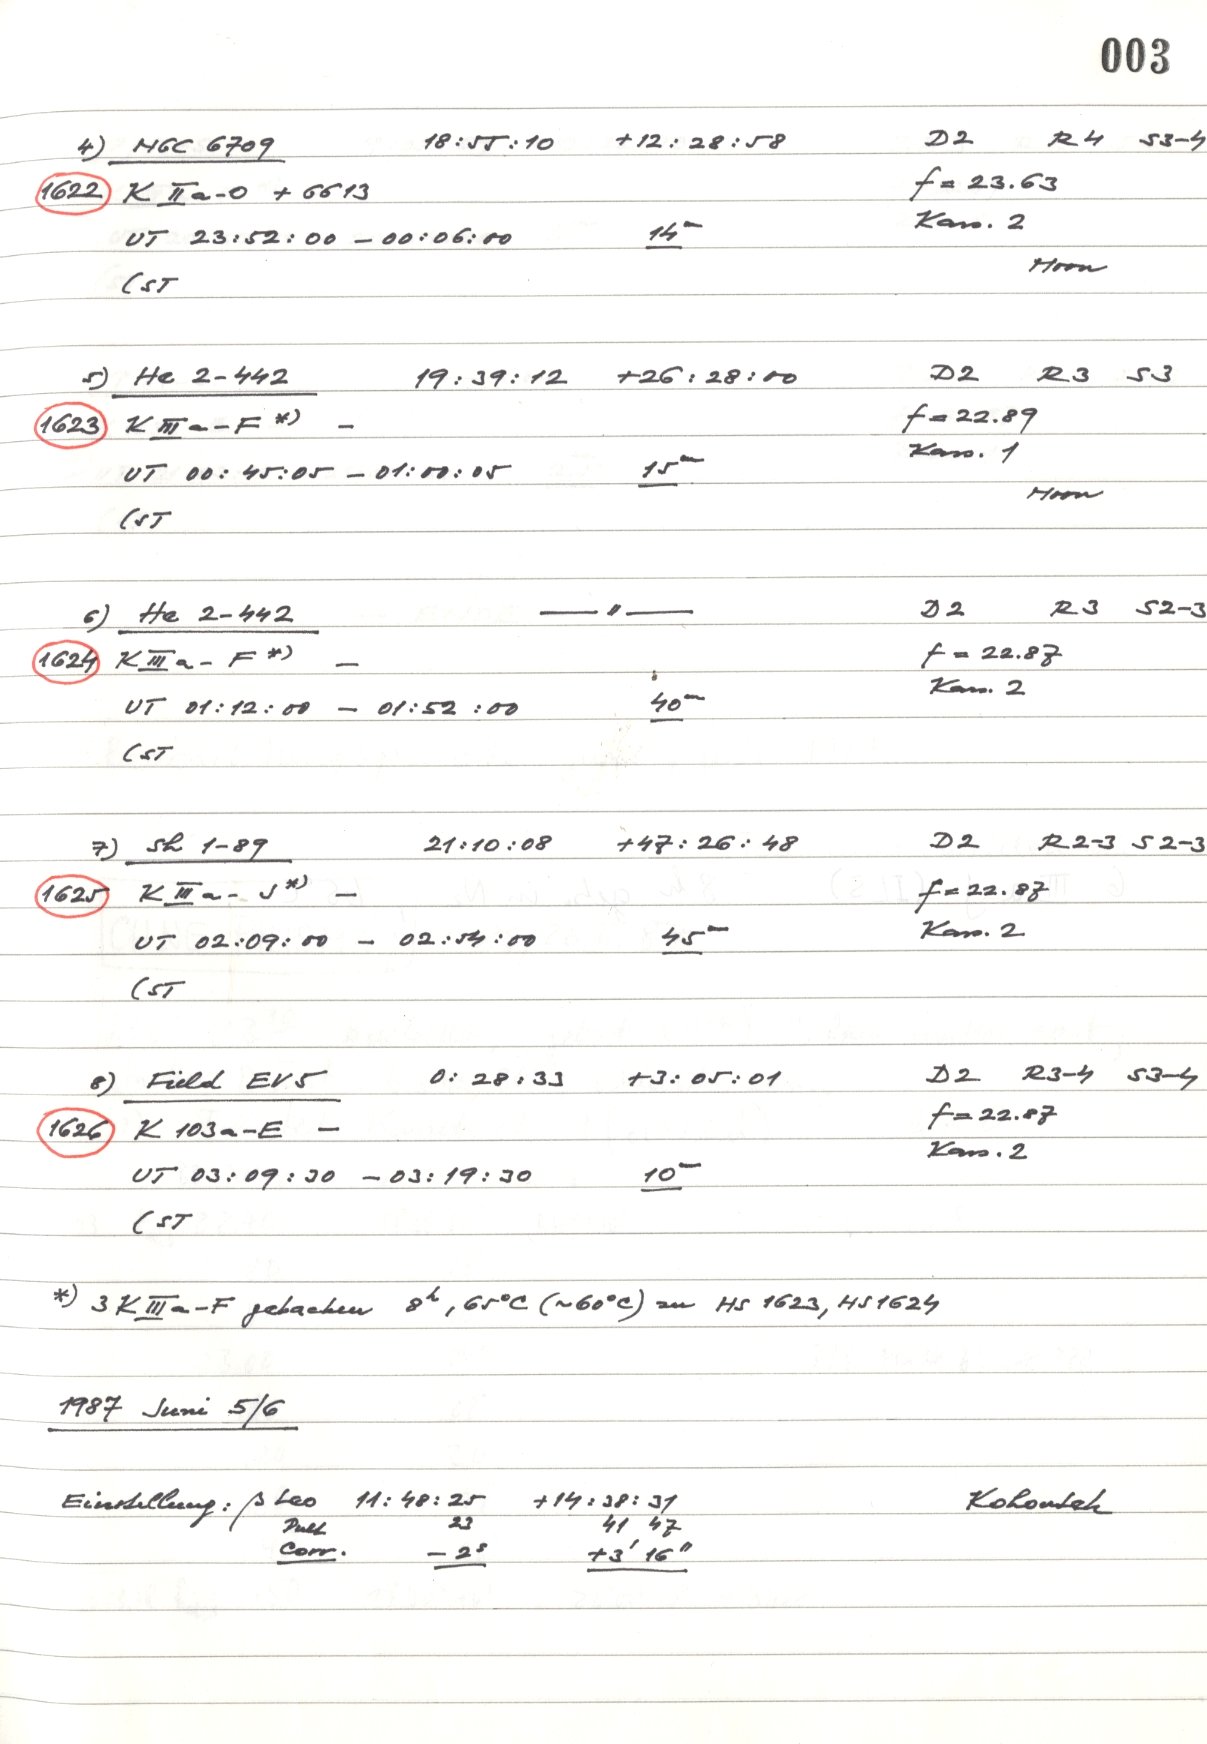 003
4) NGC 6709 18:55:10 +12:28:58 D2 R4 S3-4
1622 K IIa-O + GG13 f = 23.63
UT 23:52:00 – 00:06:00 14m Kass. 2
(ST Moon
5) He 2-442 19:39:12 +26:28:00 D2 R3 S3
1623 K IIIa-F *) – f = 22.89
UT 00:45:05 – 01:00:05 15m Kass. 1
(ST Moon
6) He 2-442 —— " —— D2 R3 S2-3
1624 K IIIa-F *) – f = 22.87
UT 01:12:00 – 01:52:00 40m Kass. 2
(ST
7) Sh 1-89 21:10:08 +47:26:48 D2 R2-3 S2-3
1625 K IIIa-J *) – f = 22.87
UT 02:09:00 – 02:54:00 45m Kass. 2
(ST
8) Field EV5 0:28:33 +3:05:01 D2 R3-4 S3-4
1626 K 103a-E – f = 22.87
UT 03:09:30 – 03:19:30 10m Kass. 2
(ST
*) 3 K IIIa-F gebacken 8h, 65°C (~60°C) zu HS 1623, HS 1624
1987 Juni 5/6
Einstellung: β Leo 11:48:25 +14:38:31 Kohoutek
Pult 23 41 47
Corr. –2s +3' 16"